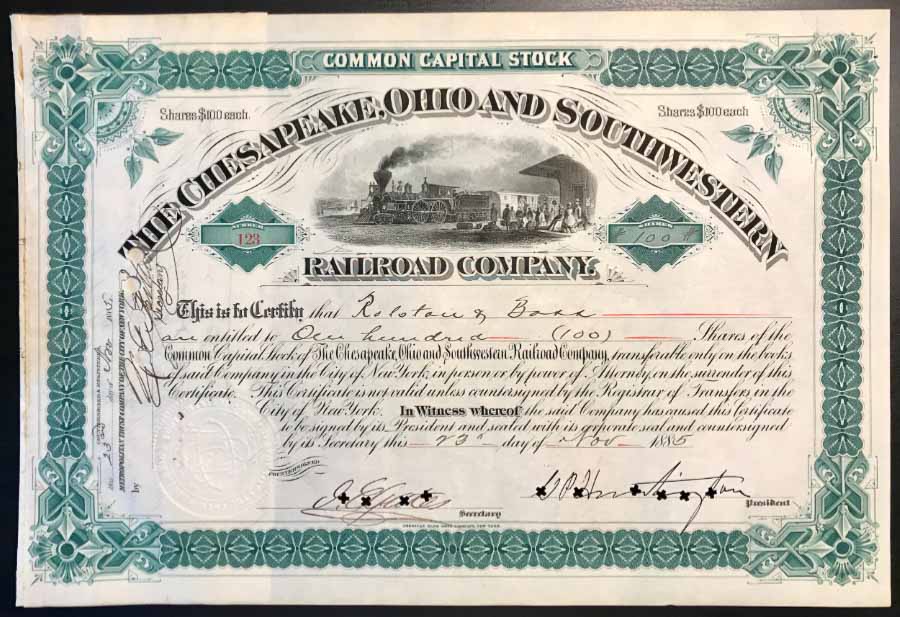 COMMON CAPITAL STOCK
Shares $100 each.
Shares $100 each
THE CHESAPEAKE, OHIO AND SOUTHWESTERN
NUMBER
123
SHARES
100
RAILROAD COMPANY.
This is to Certify that Rolston & Bass
are entitled to One hundred (100) Shares of the
Common Capital Stock of The Chesapeake, Ohio and Southwestern Railroad Company, transferable only on the books
of said Company in the City of New York, in person or by power of Attorney, on the surrender of this
Certificate. This Certificate is not valid unless countersigned by the Registrar of Transfers, in the
City of New York. In Witness whereof the said Company has caused this Certificate
to be signed by its President and sealed with its corporate seal and countersigned
by its Secretary this 23d day of Nov 1885
COUNTERSIGNED
Secretary
C P Huntington
President
AMERICAN BANK NOTE COMPANY, NEW YORK.
COUNTERSIGNED & REGISTERED
this 23 day of Nov 1885.
METROPOLITAN TRUST COMPANY OF THE CITY OF NEW YORK
by
Secretary